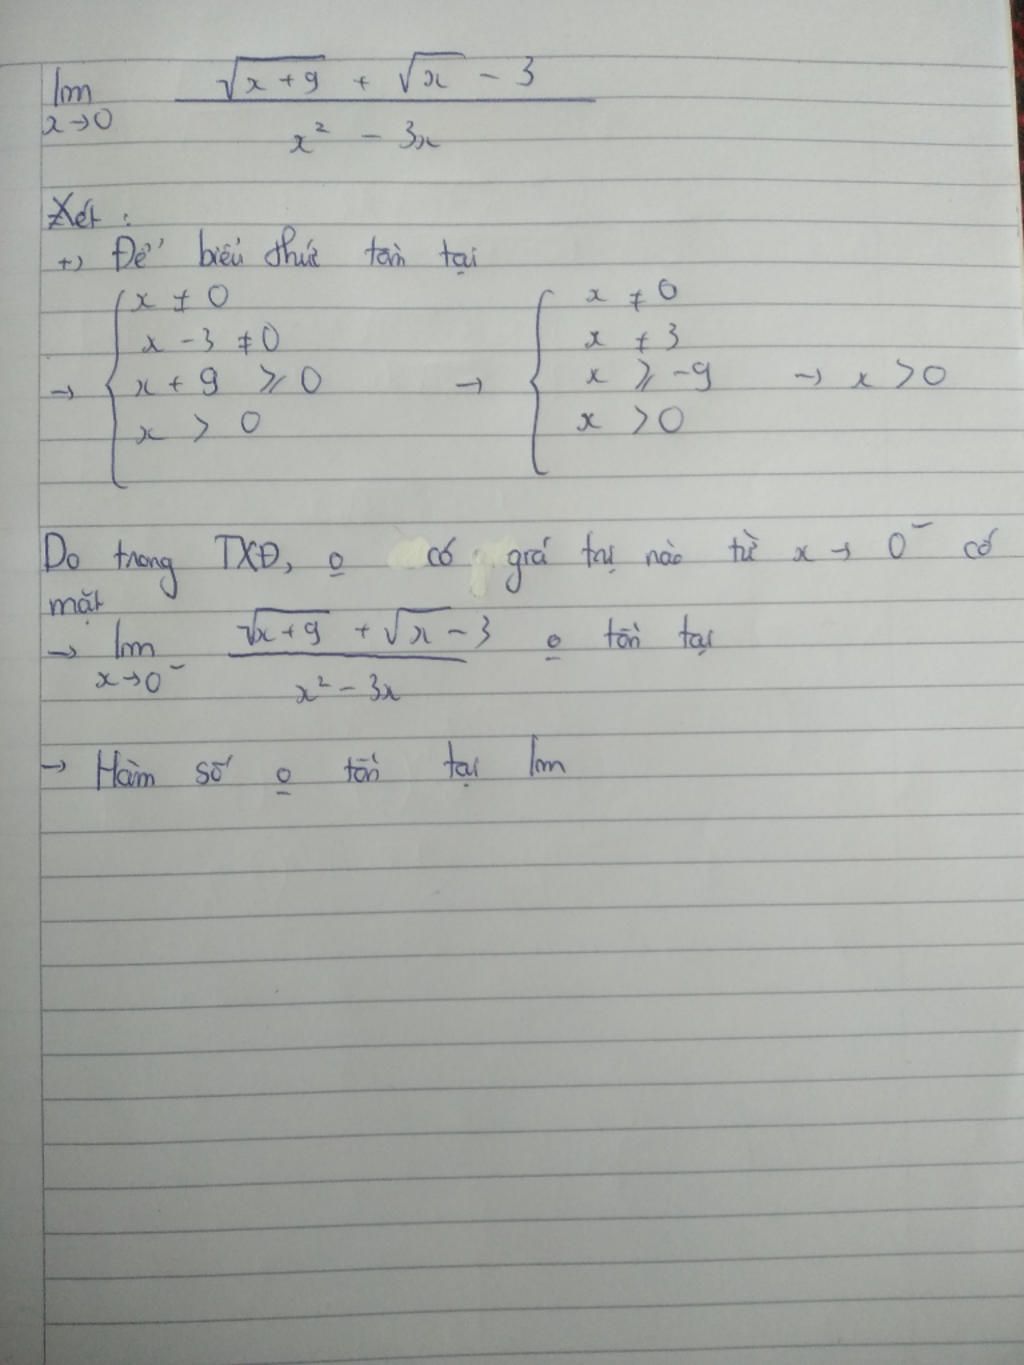 lim x→0 (√(x+9) + √x − 3) / (x² − 3x)
Xét :
+) Để biểu thức tồn tại
→ { x ≠ 0 → { x ≠ 0
x − 3 ≠ 0 x ≠ 3
x + 9 ⩾ 0 x ⩾ −9 → x > 0
x > 0 x > 0
Do trong TXĐ, o̲ có giá trị nào từ x → 0⁻ có
mặt
→ lim x→0⁻ (√(x+9) + √x − 3) / (x² − 3x) o̲ tồn tại
→ Hàm số o̲ tồn tại lim